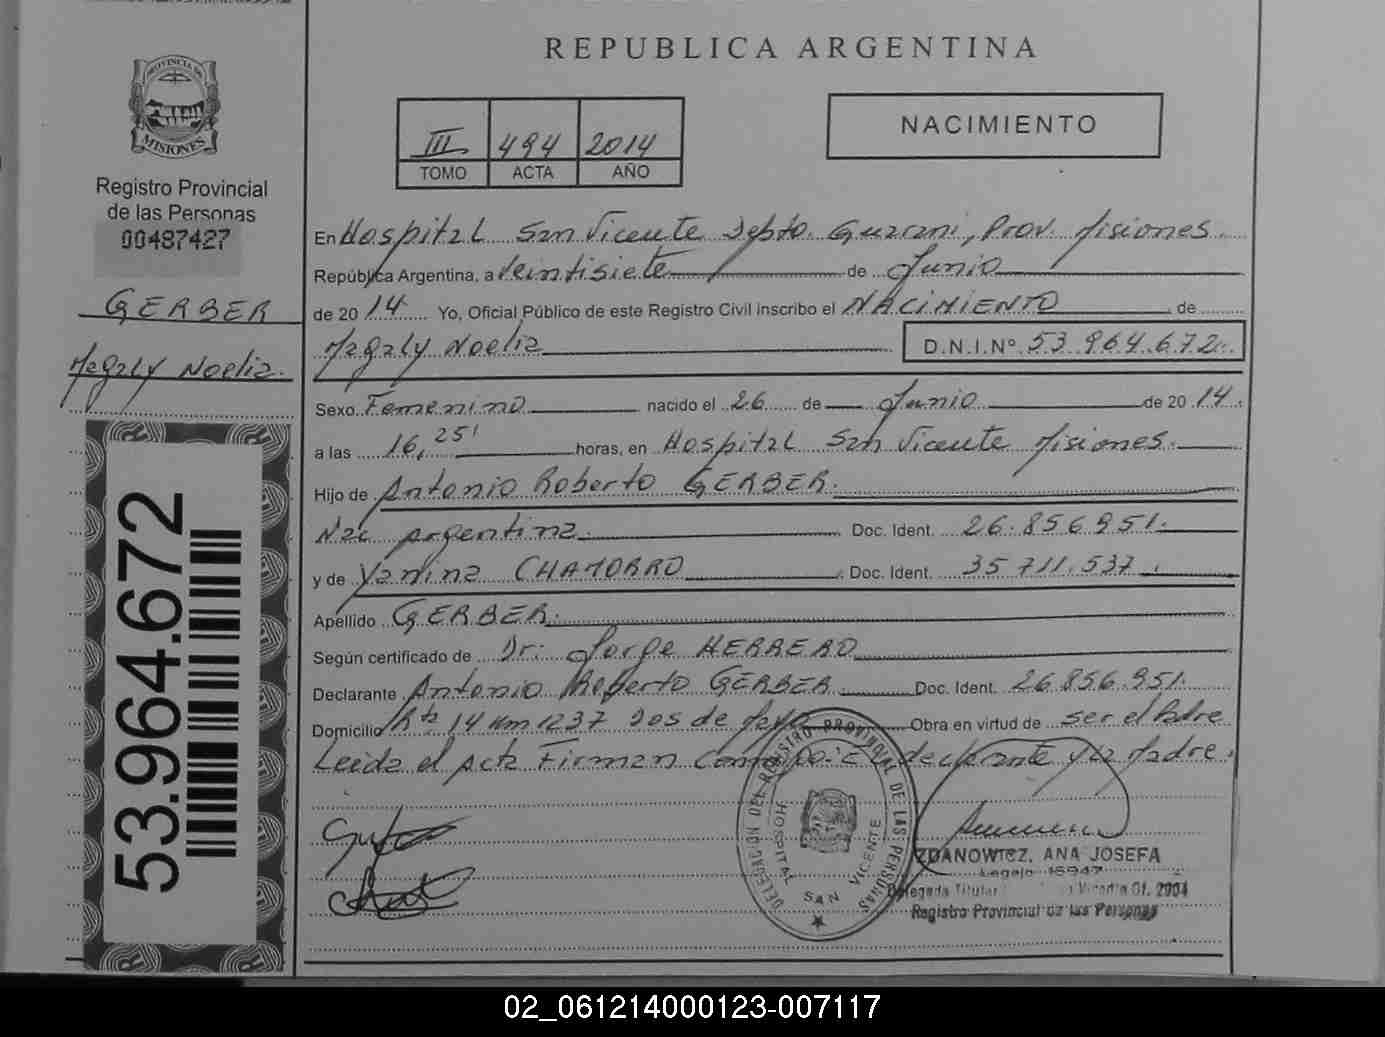 REPUBLICA ARGENTINA
PROVINCIA DE
MISIONES
Registro Provincial
de las Personas
00487427
GERBER
Magaly Noelia.
53.964.672
III 494 2014
TOMO ACTA AÑO
NACIMIENTO
En Hospital San Vicente Depto. Guarani, Prov. Misiones.
República Argentina, a Veintisiete de Junio
de 2014 Yo, Oficial Público de este Registro Civil inscribo el NACIMIENTO de
Magaly Noelia D.N.I.Nº 53.964.672.
Sexo Femenino nacido el 26 de Junio de 2014.
a las 16,25' horas, en Hospital San Vicente Misiones.
Hijo de Antonio Roberto GERBER.
Nac argentina. Doc. Ident. 26.856.951.
y de Yanina CHAMORRO Doc. Ident. 35.711.537.
Apellido GERBER.
Según certificado de Dr: Jorge HERRERO
Declarante Antonio Roberto GERBER Doc. Ident. 26.856.951.
Domicilio Rta 14 km 1237 Dos de Mayo Obra en virtud de ser el Padre
Leida el acta Firman Conmigo: El declarante y la Madre.
DELEGACION DEL REGISTRO PROVINCIAL DE LAS PERSONAS
HOSPITAL SAN VICENTE
ZDANOWICZ, ANA JOSEFA
Legajo 16947
Delegada Titular Vicente Of. 2904
Registro Provincial de las Personas
02_061214000123-007117